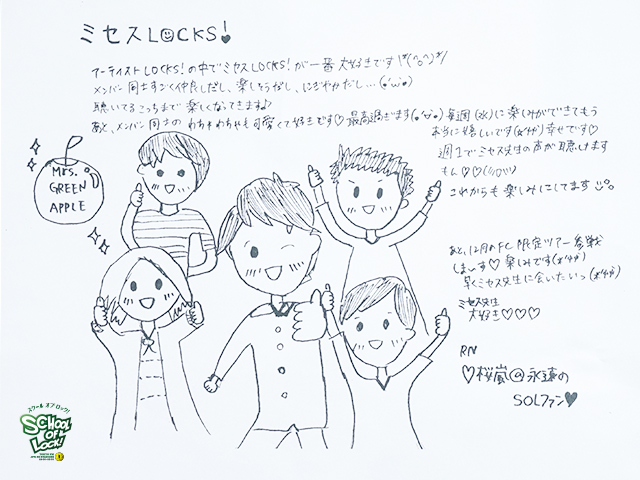 ミセスLOCKS!
アーティストLOCKS!の中でミセスLOCKS!が一番大好きです!(*^o^)*/
メンバー同士すごく仲良しだし、楽しそうだし、にぎやかだし…(●'ω'●)
聴いてるこっちまで楽しくなってきます♪
あと、メンバー同士のわちゃわちゃも可愛くて好きです♡最高過ぎます(●'ω'●)
毎週(水)に楽しみができてもう
本当に嬉しいです 幸せです♡
週1でミセス先生の声が聴けます
もん♡♡
これからも楽しみにしてます
Mrs.
GREEN
APPLE
あと、12月のFC限定ツアー参戦
しまーす♡楽しみです
早くミセス先生に会いたいっ
ミセス先生
大好き♡♡♡
RN
♡桜嵐@永遠の
SOLファン♥
スクール オブ ロック!
SCHOOL
OF
LOCK!